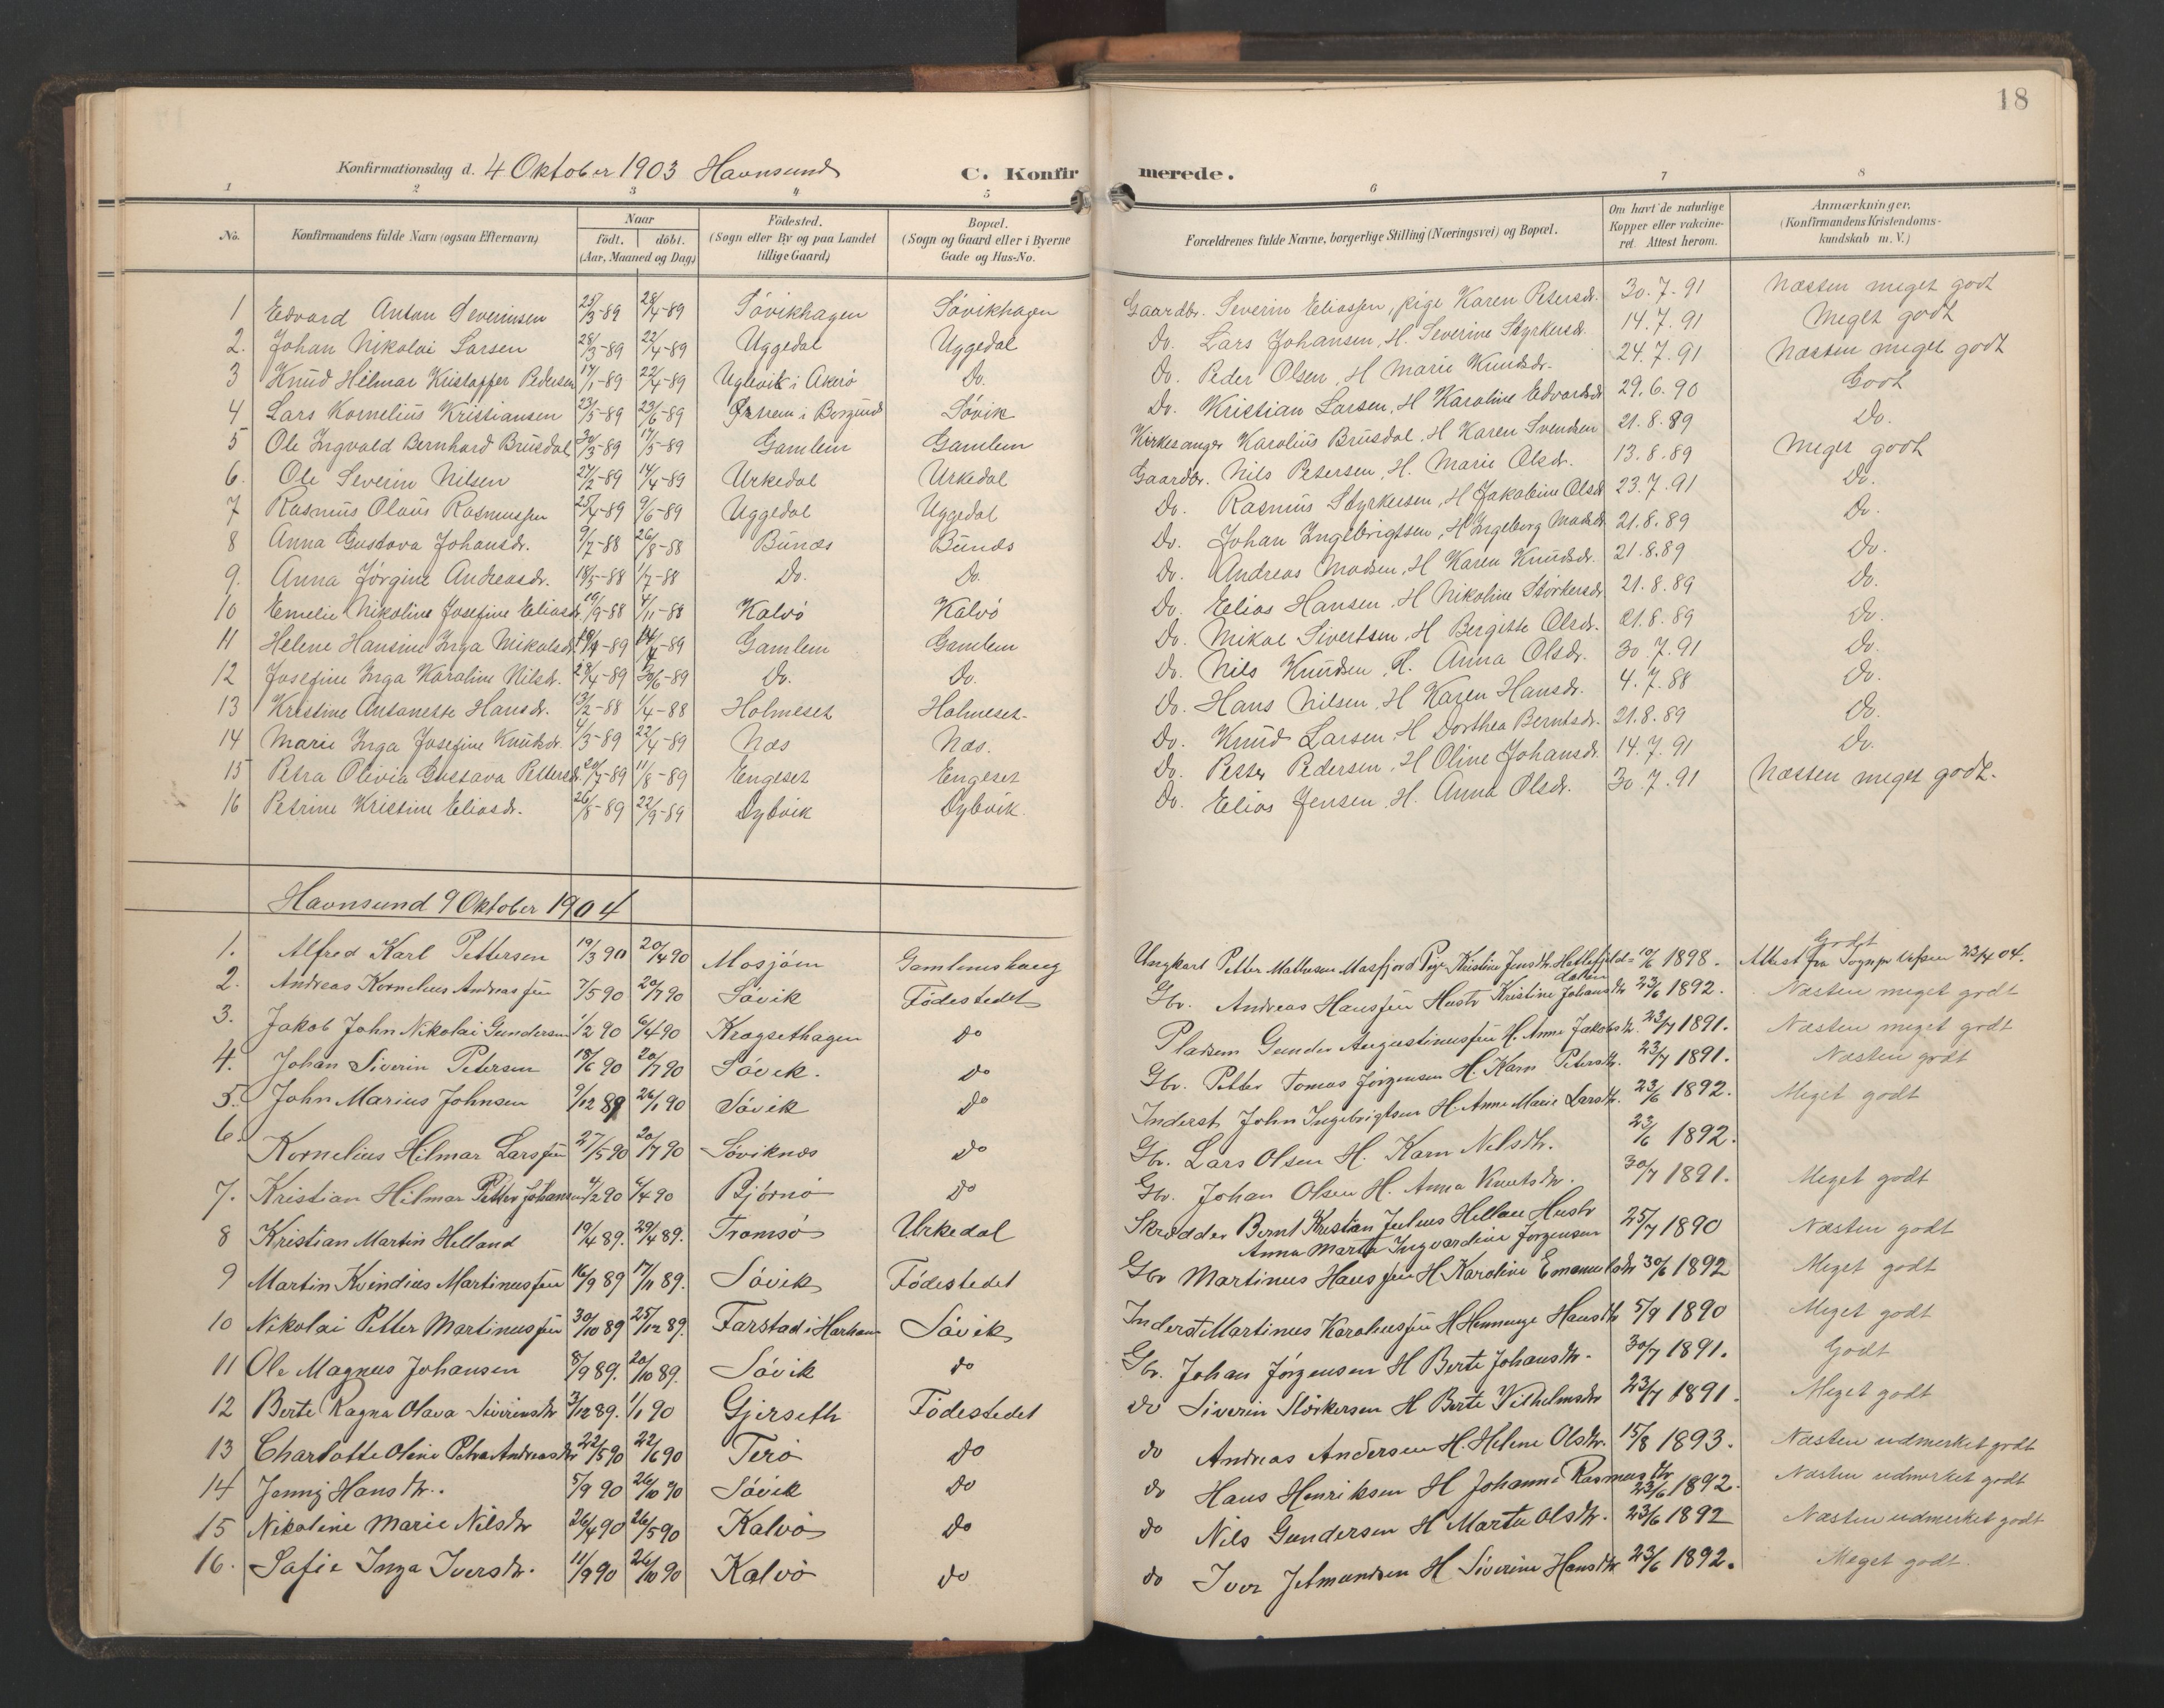 18
Konfirmationsdag d. 4 Oktober 1903 Havnsund C. Konfirmerede.
1 2 3 4 5 6 7 8
No. Konfirmandens fulde Navn (ogsaa Efternavn) Naar født, døbt. (Aar, Maaned og Dag) Fødested. (Sogn eller By og paa Landet tillige Gaard) Bopæl. (Sogn og Gaard eller i Byerne Gade og Hus-No. Forældrenes fulde Navne, borgerlige Stilling (Næringsvei) og Bopæl. Om havt de naturlige Kopper eller vakcineret. Attest herom. Anmærkninger. (Konfirmandens Kristendomskundskab m. V.)
1 Edvard Anton Severinsen 25/3-89 28/4-89 Søvikhagen Søvikhagen Gaardbr. Severin Eliassen, pige Karen Petersdr. 30.7.91 Næsten meget godt
2. Johan Nikolai Larsen 28/3-89 22/4-89 Uggedal Uggedal Do. Lars Johansen, H. Severine Styrkersdr. 14.7.91 Meget godt
3 Knud Hilmar Kristoffer Pedersen 17/1-89 22/4-89 Uglevik i Akerø Do. Do. Peder Olsen, H Marie Knudsdr. 24.7.91 Næsten meget godt
4 Lars Kornelius Kristiansen 23/5-89 23/6-89 i Borgund Søvik Do. Kristian Larsen, H Karoline Edvardsdr 29.6.90 Godt
5 Ole Ingvald Bernhard Brusdal 30/3-89 17/5-89 Gamlem Gamlem Kirkesanger Karolius Brusdal, H Karen Svendsen 21.8.89 Do.
6. Ole Severin Nilsen 27/2-89 14/4-89 Urkedal Urkedal Gaardbr. Nils Petersen, H. Marie Olsdr. 13.8.89 Meget godt
7 Rasmus Olaus Rasmussen 25/4-89 9/6-89 Uggedal Uggedal Do. Rasmus Styrkersen, H Jakobine Olsdr 23.7.91 Do.
8 Anna Gustava Johansdr. 9/7-88 26/8-88 Bunæs Bunæs Do. Johan Ingebrigtsen, H Ingeborg Madsdr 21.8.89 Do.
9. Anna Jørgine Andreasdr. 18/5-88 1/7-88 Do. Do. Do. Andreas Madsen, H Karen Knudsdr. 21.8.89 Do.
10 Emelie Nikoline Josefine Eliasdr. 19/9-88 4/11-88 Kalvø Kalvø Do. Elias Hansen, H Nikoline Størkersdr 21.8.89 Do.
11 Helene Hansine Inga Mikalsdr. -89 -89 Gamlem Gamlem Do. Mikal Sivertsen, H Bergitte Olsdr. 21.8.89 Do.
12 Josefine Inga Karoline Nilsdr. 28/4-89 30/6-89 Do. Do. Do. Nils Knudsen, H. Anna Olsdr. 30.7.91 Do.
13 Kristine Antonette Hansdr. 13/2-88 1/4-88 Holmeset Holmeset. Do. Hans Nilsen, H Karen Hansdr. 4.7.88 Do.
14 Marie Inga Josefine Knudsdr. 4/3-89 22/4-89 Næs Næs. Do. Knud Larsen, H Dorthea Berntsdr. 21.8.89 Do.
15 Petra Olivia Gustava Pettersdr. 20/7-89 11/8-89 Engeset Engeset Do. Petter Pedersen, H Oline Johansdr. 14.7.91 Do.
16 Petrine Kristine Eliasdr. 26/8-89 22/9-89 Dybvik Dybvik. Do. Elias Jensen, H. Anna Olsdr. 30.7.91 Næsten meget godt.
Havnsund 9 Oktober 1904
1. Alfred Karl Pettersen 19/3 90 20/4 90 Mosjøen Gamlemshaug Ungkarl Petter Mathesen Mosfjord Pige Kristine Jensdtr. Hatfjelddalen 10/6 1898. Godt Attest fra Sognpr Vefsen 23/4 04.
2. Andreas Kornelius Andreassen 7/5 90 20/7 90 Søvik Fødestedet Gbr. Andreas Hanssen Hustr Kristine Johansdtr 23/6 1892. Næsten meget godt
3. Jakob John Nikolai Gundersen 1/2 90 6/4 90 Krogsethagen do Pladsm Gunder Augustinussen H. Anne Jakobsdtr. 23/7 1891. Næsten meget godt
4. Johan Siverin Petersen 18/6 90 20/7 90 Søvik. do Gbr. Petter Tomas Jørgensen H. Karn Petersdtr. 23/7 1891. Næsten godt
5. John Marius Johnsen 9/12 89 26/1 90 Søvik do Inderst John Ingebrigtsen H. Anne Marie Larsdtr. 23/6 1892. Meget godt
6. Kornelius Hilmar Larssen 27/5 90 20/7 90 Søviknæs do Gbr. Lars Olsen H. Karn Nilsdtr. 23/6 1892.
7. Kristian Hilmar Petter Johansen 4/2 90 6/4 90 Bjørnø do Gbr. Johan Olsen H. Anna Knutsdtr. 30/7 1891. Meget godt
8 Kristian Martin Helland 19/4 89. 29/4 89. Tromsø Urkedal Skrædder Bernt Kristian Julius Helland Hustr Anna Marta Ingvardine Jørgensen 25/7 1890 Næsten godt
9 Martin Kvindius Martinussen 16/9 89 17/11 89. Søvik Fødestedet Gbr Martinus Hanssen H Karoline Emanuelsdtr 30/6 1892 Meget godt
10 Nikolai Petter Martinussen 30/10 89 25/12 89. Farstad i Harham Søvik Inderst Martinus Karoliussen H Hansdtr 5/9 1890 Meget godt
11 Ole Magnus Johansen 8/9 89. 20/10 89. Søvik do Gbr. Johan Jørgensen H Berte Johansdtr. 30/7 1891. Godt
12 Berte Ragna Olava Siverinsdtr 3/12 89. 1/1 90 Gjerseth Fødestedet do Siverin Størkersen H Berte Vilhelmsdtr 23/7 1891. Meget godt
13 Charlotte Oline Petra Andreasdtr 22/5 90 22/6 90 Terø do do Andreas Andersen H. Helene Olsdtr. 15/8 1893. Næsten udmerket godt
14 Jenny Hansdtr. 5/9 90 26/10 90 Søvik do do Hans Henriksen H Johanne Rasmusdtr 23/6 1892. Næsten udmerket godt
15 Nikoline Marie Nilsdtr 26/4 90 26/5 90 Kalvø do do Nils Gundersen H Marta Olsdtr. 23/6 1892 Næsten udmerket godt
16. Sofie Inga Iversdtr. 11/9 90 26/10 90 Kalvø do do Iver Jetmundsen H Siverine Hansdtr 23/6 1892. Meget godt